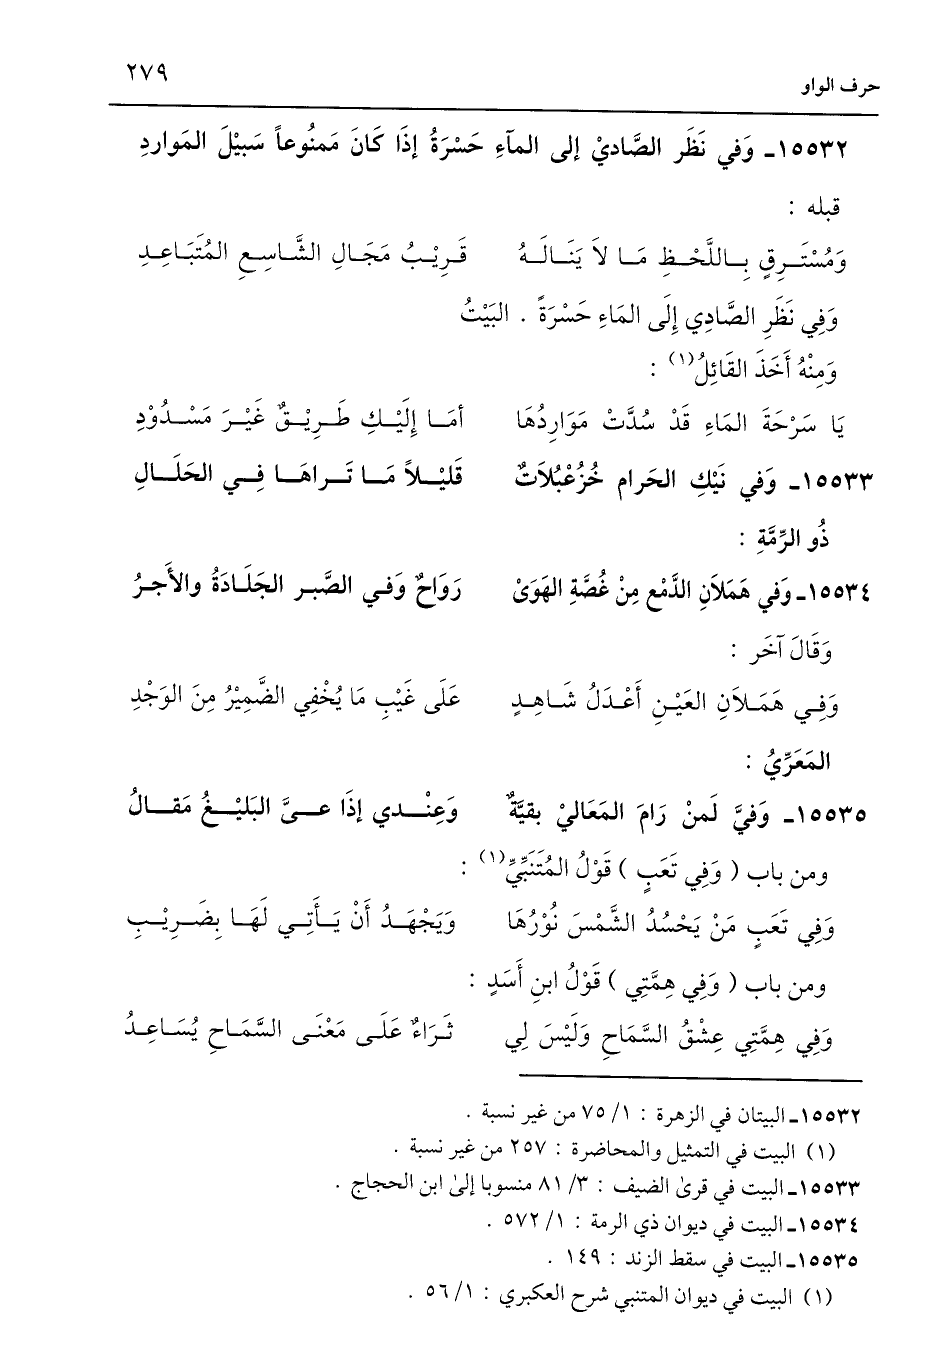 حرف الواو ٢٧٩
١٥٥٣٢ـ وَفي نَظَر الصَّاديْ إلى المآءِ حَسْرَةُ إذَا كَانَ مَمنُوعاً سَبيْلَ المَواردِ
قبله :
وَمُسْتَـرِقٍ بِـاللَّحْـظِ مَـا لاَ يَنَـالَـهُ قَـرِيْـبُ مَجَـالِ الشَّـاسِـعِ المُتَبَـاعِـدِ
وَفِي نَظَرِ الصَّادِي إِلَى المَاءِ حَسْرَةً . البَيْتُ
وَمِنْهُ أَخَذَ القَائِلُ(١) :
يَا سَرْحَةَ المَاءِ قَدْ سُدَّتْ مَوَارِدُهَا أمَـا إِلَيْـكِ طَـرِيْـقٌ غَيْـرَ مَسْـدُوْدِ
١٥٥٣٣ـ وَفي نَيْكِ الحَرام خُزُعْبُلَاتٌ قَليْـلاً مَـا تَـراهَـا فِـي الحَلَـالِ
ذُو الرِّمَّةِ :
١٥٥٣٤ـ وَفي هَمَلاَنِ الدَّمْع مِنْ غُصَّةِ الهَوَىْ رَوَاحٌ وَفـي الصَّبـر الجَلَـادَةُ والأَجـرُ
وَقَالَ آخَر :
وَفِـي هَمَـلاَنِ العَيْـنِ أَعْـدَلُ شَـاهِـدٍ عَلَى غَيْبِ مَا يُخْفِي الضَّمِيْرُ مِنَ الوَجْدِ
المَعَرِّيُ :
١٥٥٣٥ـ وَفيَّ لَمنْ رَامَ المَعَاليْ بقيَّةٌ وَعِنْـدي إذَا عـىَّ البَليْـغُ مَقـالُ
ومن باب ( وَفِي تَعَبٍ ) قَوْلُ المُتَنَبِّيِّ(١) :
وَفِي تَعَبٍ مَنْ يَحْسُدُ الشَّمْسَ نُوْرُهَا وَيَجْهَـدُ أَنْ يَـأتِـي لَهَـا بِضَـرِيْـبِ
ومن باب ( وَفِي هِمَّتِي ) قَوْلُ ابنِ أَسَدٍ :
وَفِي هِمَّتِي عِشْقُ السَّمَاحِ وَلَيْسَ لِي ثَـرَاءٌ عَلَـى مَعْنَـى السَّمَـاحِ يُسَـاعِـدُ
١٥٥٣٢ـ البيتان في الزهرة : ١/ ٧٥ من غير نسبة .
(١) البيت في التمثيل والمحاضرة : ٢٥٧ من غير نسبة .
١٥٥٣٣ـ البيت في قرىٰ الضيف : ٣/ ٨١ منسوبا إلىٰ ابن الحجاج .
١٥٥٣٤ـ البيت في ديوان ذي الرمة : ١/ ٥٧٢ .
١٥٥٣٥ـ البيت في سقط الزند : ١٤٩ .
(١) البيت في ديوان المتنبي شرح العكبري : ١/ ٥٦ .